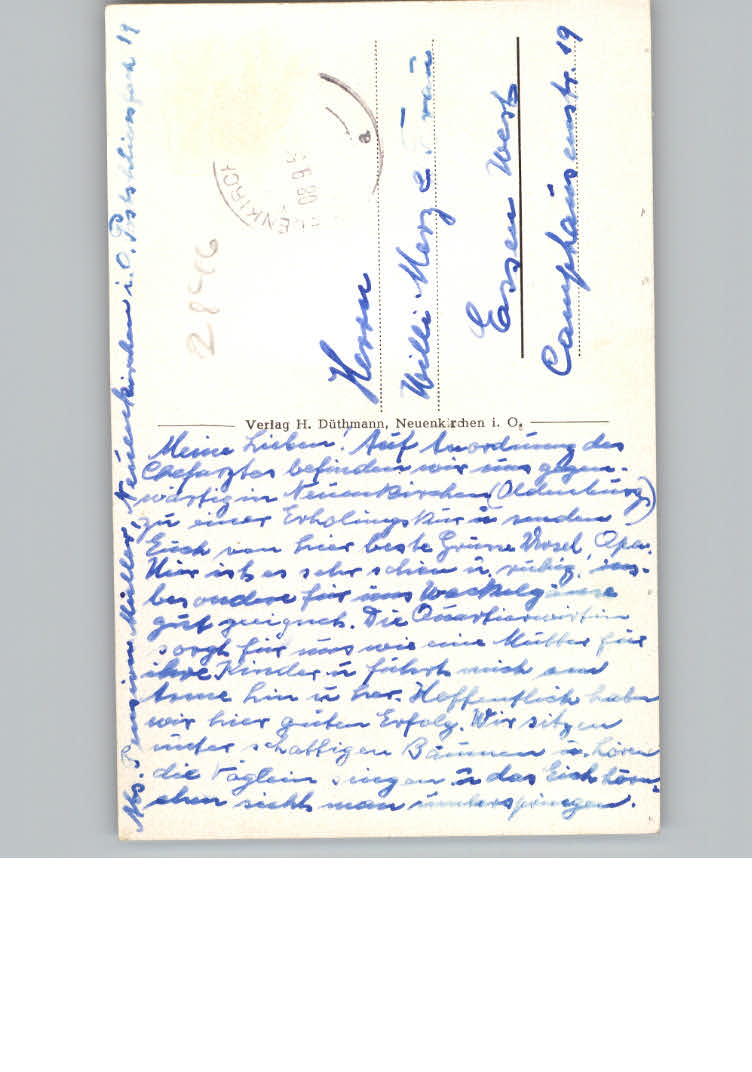 Herrn
Willi Merz u. Frau
Essen West
Camphausenstr. 19
28446
Verlag H. Düthmann, Neuenkirchen i. O.
Meine Lieben! Auf Anordnung des
Chefarztes befinden wir uns gegen-
wärtig in Neuenkirchen (Oldenburg)
zu einer Erholungskur u. senden
Euch von hier beste Grüsse Opa.
Hier ist es sehr schön u. ruhig, ins-
besondere für uns Wackelgänse
gut geeignet. Die Quartierwirtin
sorgt für uns wie eine Mutter für
ihre Kinder u. führt mich am
Arme hin u. her. Hoffentlich haben
wir hier guten Erfolg. Wir sitzen
unter schattigen Bäumen u. hören
die Vöglein singen u. das Eichhörn-
chen sieht man umherspringen.
Abs. Pension Müller, Neuenkirchen i. O. Postschliessfach 19